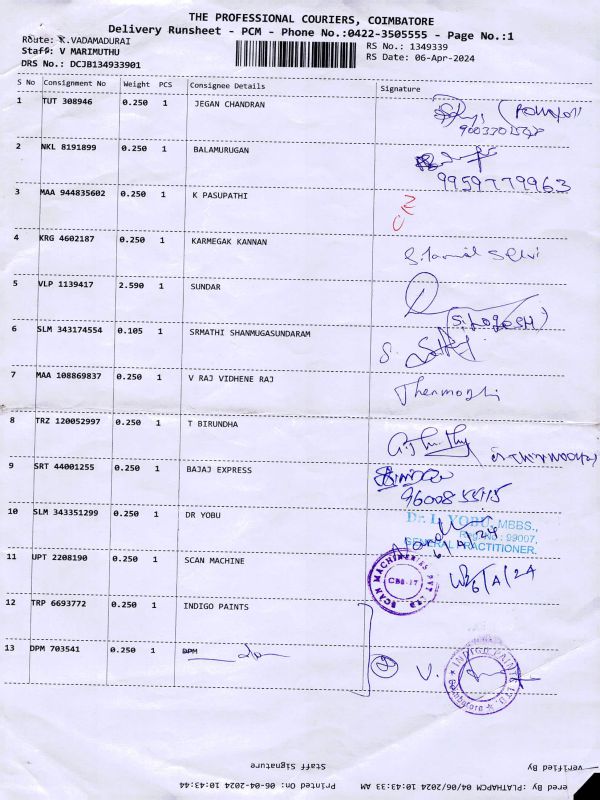 THE PROFESSIONAL COURIERS, COIMBATORE
Delivery Runsheet - PCM - Phone No.:0422-3505555 - Page No.:1
Route: K.VADAMADURAI
Staff: V MARIMUTHU
DRS No.: DCJB134933901
RS No.: 1349339
RS Date: 06-Apr-2024
S No Consignment No Weight PCS Consignee Details Signature
1 TUT 308946 0.250 1 JEGAN CHANDRAN
2 NKL 8191899 0.250 1 BALAMURUGAN
9959779963
3 MAA 944835602 0.250 1 K PASUPATHI
4 KRG 4602187 0.250 1 KARMEGAK KANNAN
S. Tamil Selvi
5 VLP 1139417 2.590 1 SUNDAR
(S. LOGESH)
6 SLM 343174554 0.105 1 SRMATHI SHANMUGASUNDARAM
S.
7 MAA 108869837 0.250 1 V RAJ VIDHENE RAJ
8 TRZ 120052997 0.250 1 T BIRUNDHA
9 SRT 44001255 0.250 1 BAJAJ EXPRESS
10 SLM 343351299 0.250 1 DR YOBU
Dr. I. YOBU, MBBS.,
Reg No : 99007,
GENERAL PRACTITIONER.
6/4/24
11 UPT 2208190 0.250 1 SCAN MACHINE
SCAN MACHINERIES PVT LTD
CBE-17
6/4/24
12 TRP 6693772 0.250 1 INDIGO PAINTS
13 DPM 703541 0.250 1 DPM
2
V.
INDIGO PAINTS LTD
Coimbatore
verified By
Staff Signature
ered By :PLATHAPCM 04/06/2024 10:43:33 AM
Printed On: 06-04-2024 10:43:44